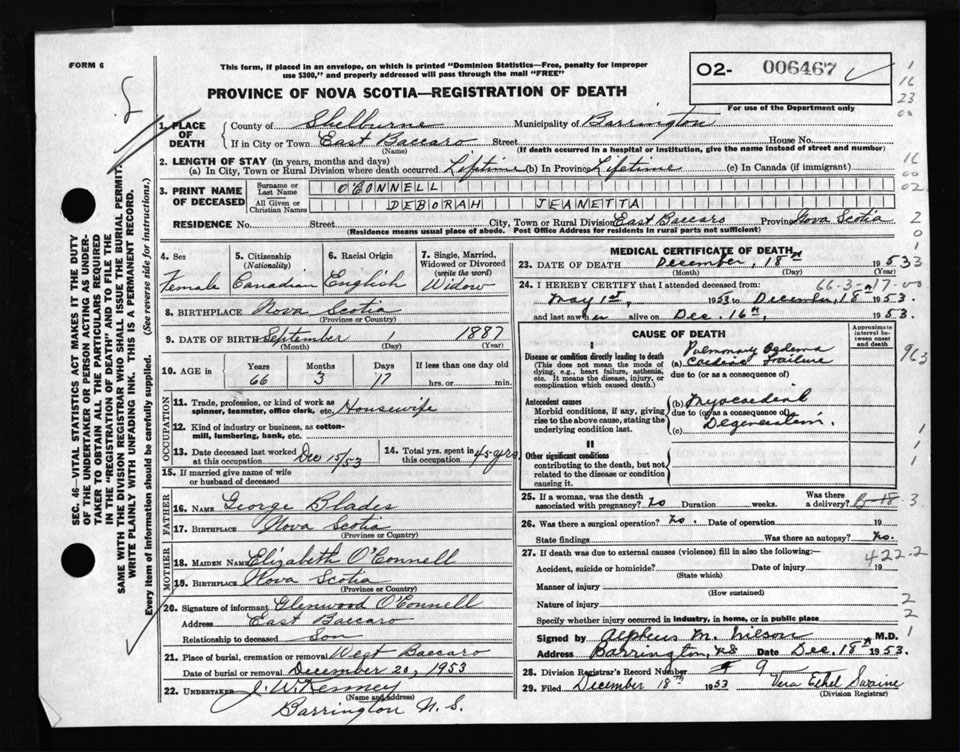 FORM 6
This form, if placed in an envelope, on which is printed "Dominion Statistics—Free, penalty for improper
use $300," and properly addressed will pass through the mail "FREE"
O2- 006467
For use of the Department only
PROVINCE OF NOVA SCOTIA—REGISTRATION OF DEATH
1. PLACE OF DEATH County of Shelburne Municipality of Barrington
If in City or Town East Baccaro Street House No.
(Name) (If death occurred in a hospital or institution, give the name instead of street and number)
2. LENGTH OF STAY (in years, months and days)
(a) In City, Town or Rural Division where death occurred Lifetime (b) In Province Lifetime (c) In Canada (if immigrant)
3. PRINT NAME OF DECEASED Surname or Last Name O'CONNELL
All Given or Christian Names DEBORAH JEANETTA
RESIDENCE No. Street City, Town or Rural Division East Baccaro Province Nova Scotia
(Residence means usual place of abode. Post Office Address for residents in rural parts not sufficient)
4. Sex 5. Citizenship (Nationality) 6. Racial Origin 7. Single, Married, Widowed or Divorced (write the word)
Female Canadian English Widow
8. BIRTHPLACE Nova Scotia
(Province or Country)
9. DATE OF BIRTH September 1 1887
(Month) (Day) (Year)
10. AGE Years Months Days If less than one day old
66 3 17 hrs. or min.
OCCUPATION
11. Trade, profession, or kind of work as spinner, teamster, office clerk, etc. Housewife
12. Kind of industry or business, as cotton-mill, lumbering, bank, etc.
13. Date deceased last worked at this occupation Dec 15/53 14. Total yrs. spent in this occupation 45 yrs
15. If married give name of wife or husband of deceased
FATHER
16. Name George Blades
17. Birthplace Nova Scotia
(Province or Country)
MOTHER
18. Maiden Name Elizabeth O'Connell
19. Birthplace Nova Scotia
(Province or Country)
20. Signature of informant Glenwood O'Connell
Address East Baccaro
Relationship to deceased Son
21. Place of burial, cremation or removal West Baccaro
Date of burial or removal December 20, 1953
22. UNDERTAKER J. W. Kenney
(Name and address)
Barrington N. S.
MEDICAL CERTIFICATE OF DEATH
23. DATE OF DEATH December, 18th 1953
(Month) (Day) (Year)
66-3-17-00
24. I HEREBY CERTIFY that I attended deceased from:
May 1st, 1953 to December, 18 1953.
and last saw her alive on Dec. 16th, 1953.
CAUSE OF DEATH
Approximate interval between onset and death
I
Disease or condition directly leading to death
(This does not mean the mode of dying, e.g., heart failure, asthenia, etc. It means the disease, injury, or complication which caused death.)
Pulmonary Oedema
(a) Cardiac Failure
due to (or as a consequence of)
Antecedent causes
Morbid conditions, if any, giving rise to the above cause, stating the underlying condition last.
(b) Myocardial
due to (or as a consequence of)
Degeneration.
(c)
II
Other significant conditions
contributing to the death, but not related to the disease or condition causing it.
25. If a woman, was the death associated with pregnancy? No Duration weeks. Was there a delivery?
26. Was there a surgical operation? No. Date of operation 19
State findings Was there an autopsy? No.
27. If death was due to external causes (violence) fill in also the following:—
422.2
Accident, suicide or homicide? Date of injury 19
(State which)
Manner of injury
(How sustained)
Nature of injury
Specify whether injury occurred in industry, in home, or in public place
Signed by Alpheus M. Wilson M.D.
Address Barrington, NS Date Dec. 18th 1953.
28. Division Registrar's Record Number 9
29. Filed December 18th 1953 Vera Ethel Swaine
(Division Registrar)
SEC. 46—VITAL STATISTICS ACT MAKES IT THE DUTY
OF THE UNDERTAKER OR PERSON ACTING AS UNDER-
TAKER TO OBTAIN ALL THE PARTICULARS REQUIRED
IN THE "REGISTRATION OF DEATH" AND TO FILE THE
SAME WITH THE DIVISION REGISTRAR WHO SHALL ISSUE THE BURIAL PERMIT.
WRITE PLAINLY WITH UNFADING INK. THIS IS A PERMANENT RECORD.
Every item of information should be carefully supplied. (See reverse side for instructions.)
1
16
23
00
16
00
02
2
0
1
33
963
1
1
1
3
2
2
1